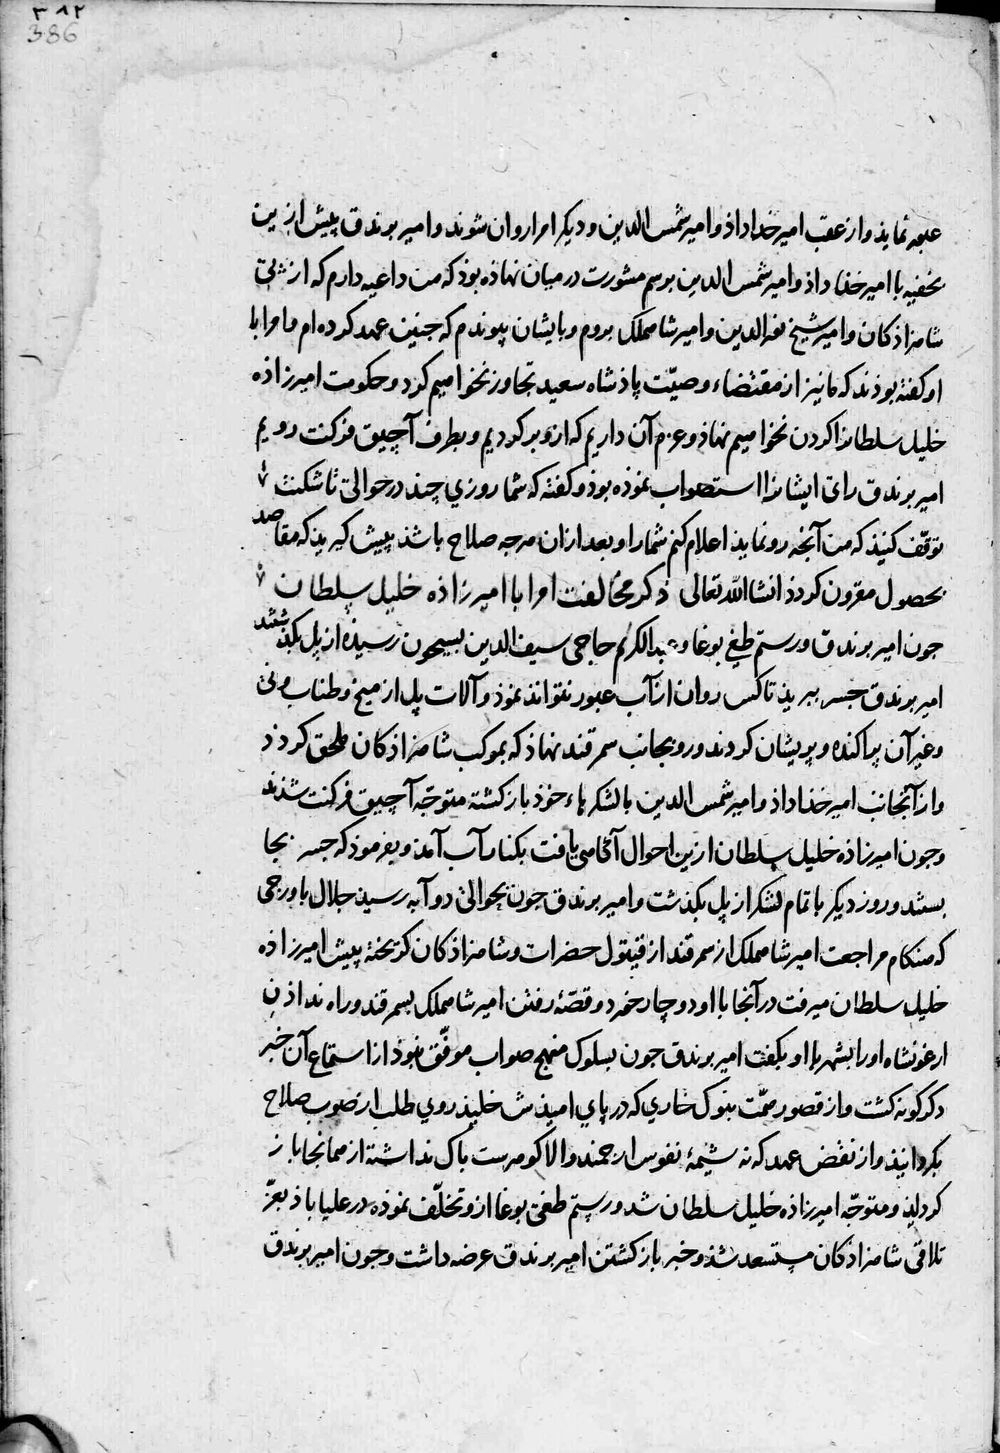 ۳۸۲
386
عبور نماید و از عقب امیر خداداد و امیر شمس الدین و دیگر امرا روان شوند و امیر برندق پیش ازین
بخفیه با امیر خداداذ و امیر شمس الدین برسم مشورت در میان نهاذه بوذ که من داعیه دارم که از پی
شاهزاذکان و امیر شیخ نور الدین و امیر شاهملک بروم و بایشان پیوندم که جنین عهد کرده ام و امرا با
او کفته بوذند که ما نیز از مقتضاء وصیّت پاذشاه سعید تجاوز نخواهیم کرد و حکومت امیرزاذه
خلیل سلطانرا کردن نخواهیم نهاذ و عزم آن داریم که ازو بر کردیم و بطرف آچیق فرکنت رویم
امیر برندق رای ایشانرا استصواب نموذه بوذ و کفته که شما روزی چند در حوالی تاشکنت
توقّف کنیذ که من آنجه رو نمایذ اعلام کنم شما را و بعد ازان هرجه صلاح باشذ پیش کیریذ که مقاصد
بحصول مقرون کردذ انشا الله تعالی ذکر مخالفت امرا با امیرزاذه خلیل سلطان
جون امیر برندق و رستم طغی بوغا و عبدالکریم حاجی سیف الدین بسیحون رسیذه از پل بکذشتند
امیر برندق جسر ببریذ تا کس روان از آب عبور نتواند نموذ و آلات پل از میخ و طناب و نی
و غیر آن پراکنده و پریشان کردند و رو بجانب سمرقند نهاذ که بموکب شاهزاذکان ملحق کردذ
و از آنجانب امیر خداداذ و امیر شمس الدین با لشکرهاء خوذ باز کشته متوجّه آچیق فرکنت شدند
و جون امیرزاذه خلیل سلطان ازین احوال آکاهی یافت بکنار آب آمذ و بفرموذ که جسر بجا
بستند و روز دیکر با تمام لشکر از پل بکذشت و امیر برندق جون بحوالی دو آبه رسیذ جلال باورجی
که هنکام مراجعت امیر شاهملک از سمرقند از قیتول حضرات و شاهزاذکان کریخته پیش امیرزاذه
خلیل سلطان میرفت در آنجا با او دوچار خورد و قصّه رفتن امیر شاهملک بسمرقند و راه نداذن
ارغونشاه او را بشهر با او بکفت امیر برندق جون بسلوک منهج صواب موفّق نبوذ از استماع آن خبر
دکرکونه کشت و از قصور همّت بنوک خاری که در پای امیذش خلیذ روی طلب از صوب صلاح
بکردانیذ و از نقض عهد که نه شیمهٔ نفوس ارجمند والا کوهرست باک نداشته از همانجا باز
کردیذ و متوجّه امیرزاذه خلیل سلطان شد و رستم طغی بوغا ازو تخلّف نموذه در علیاباذ بعزّ
تلاقی شاهزاذکان مستسعد شذ و خبر باز کشتن امیر برندق عرضه داشت و جون امیر برندق